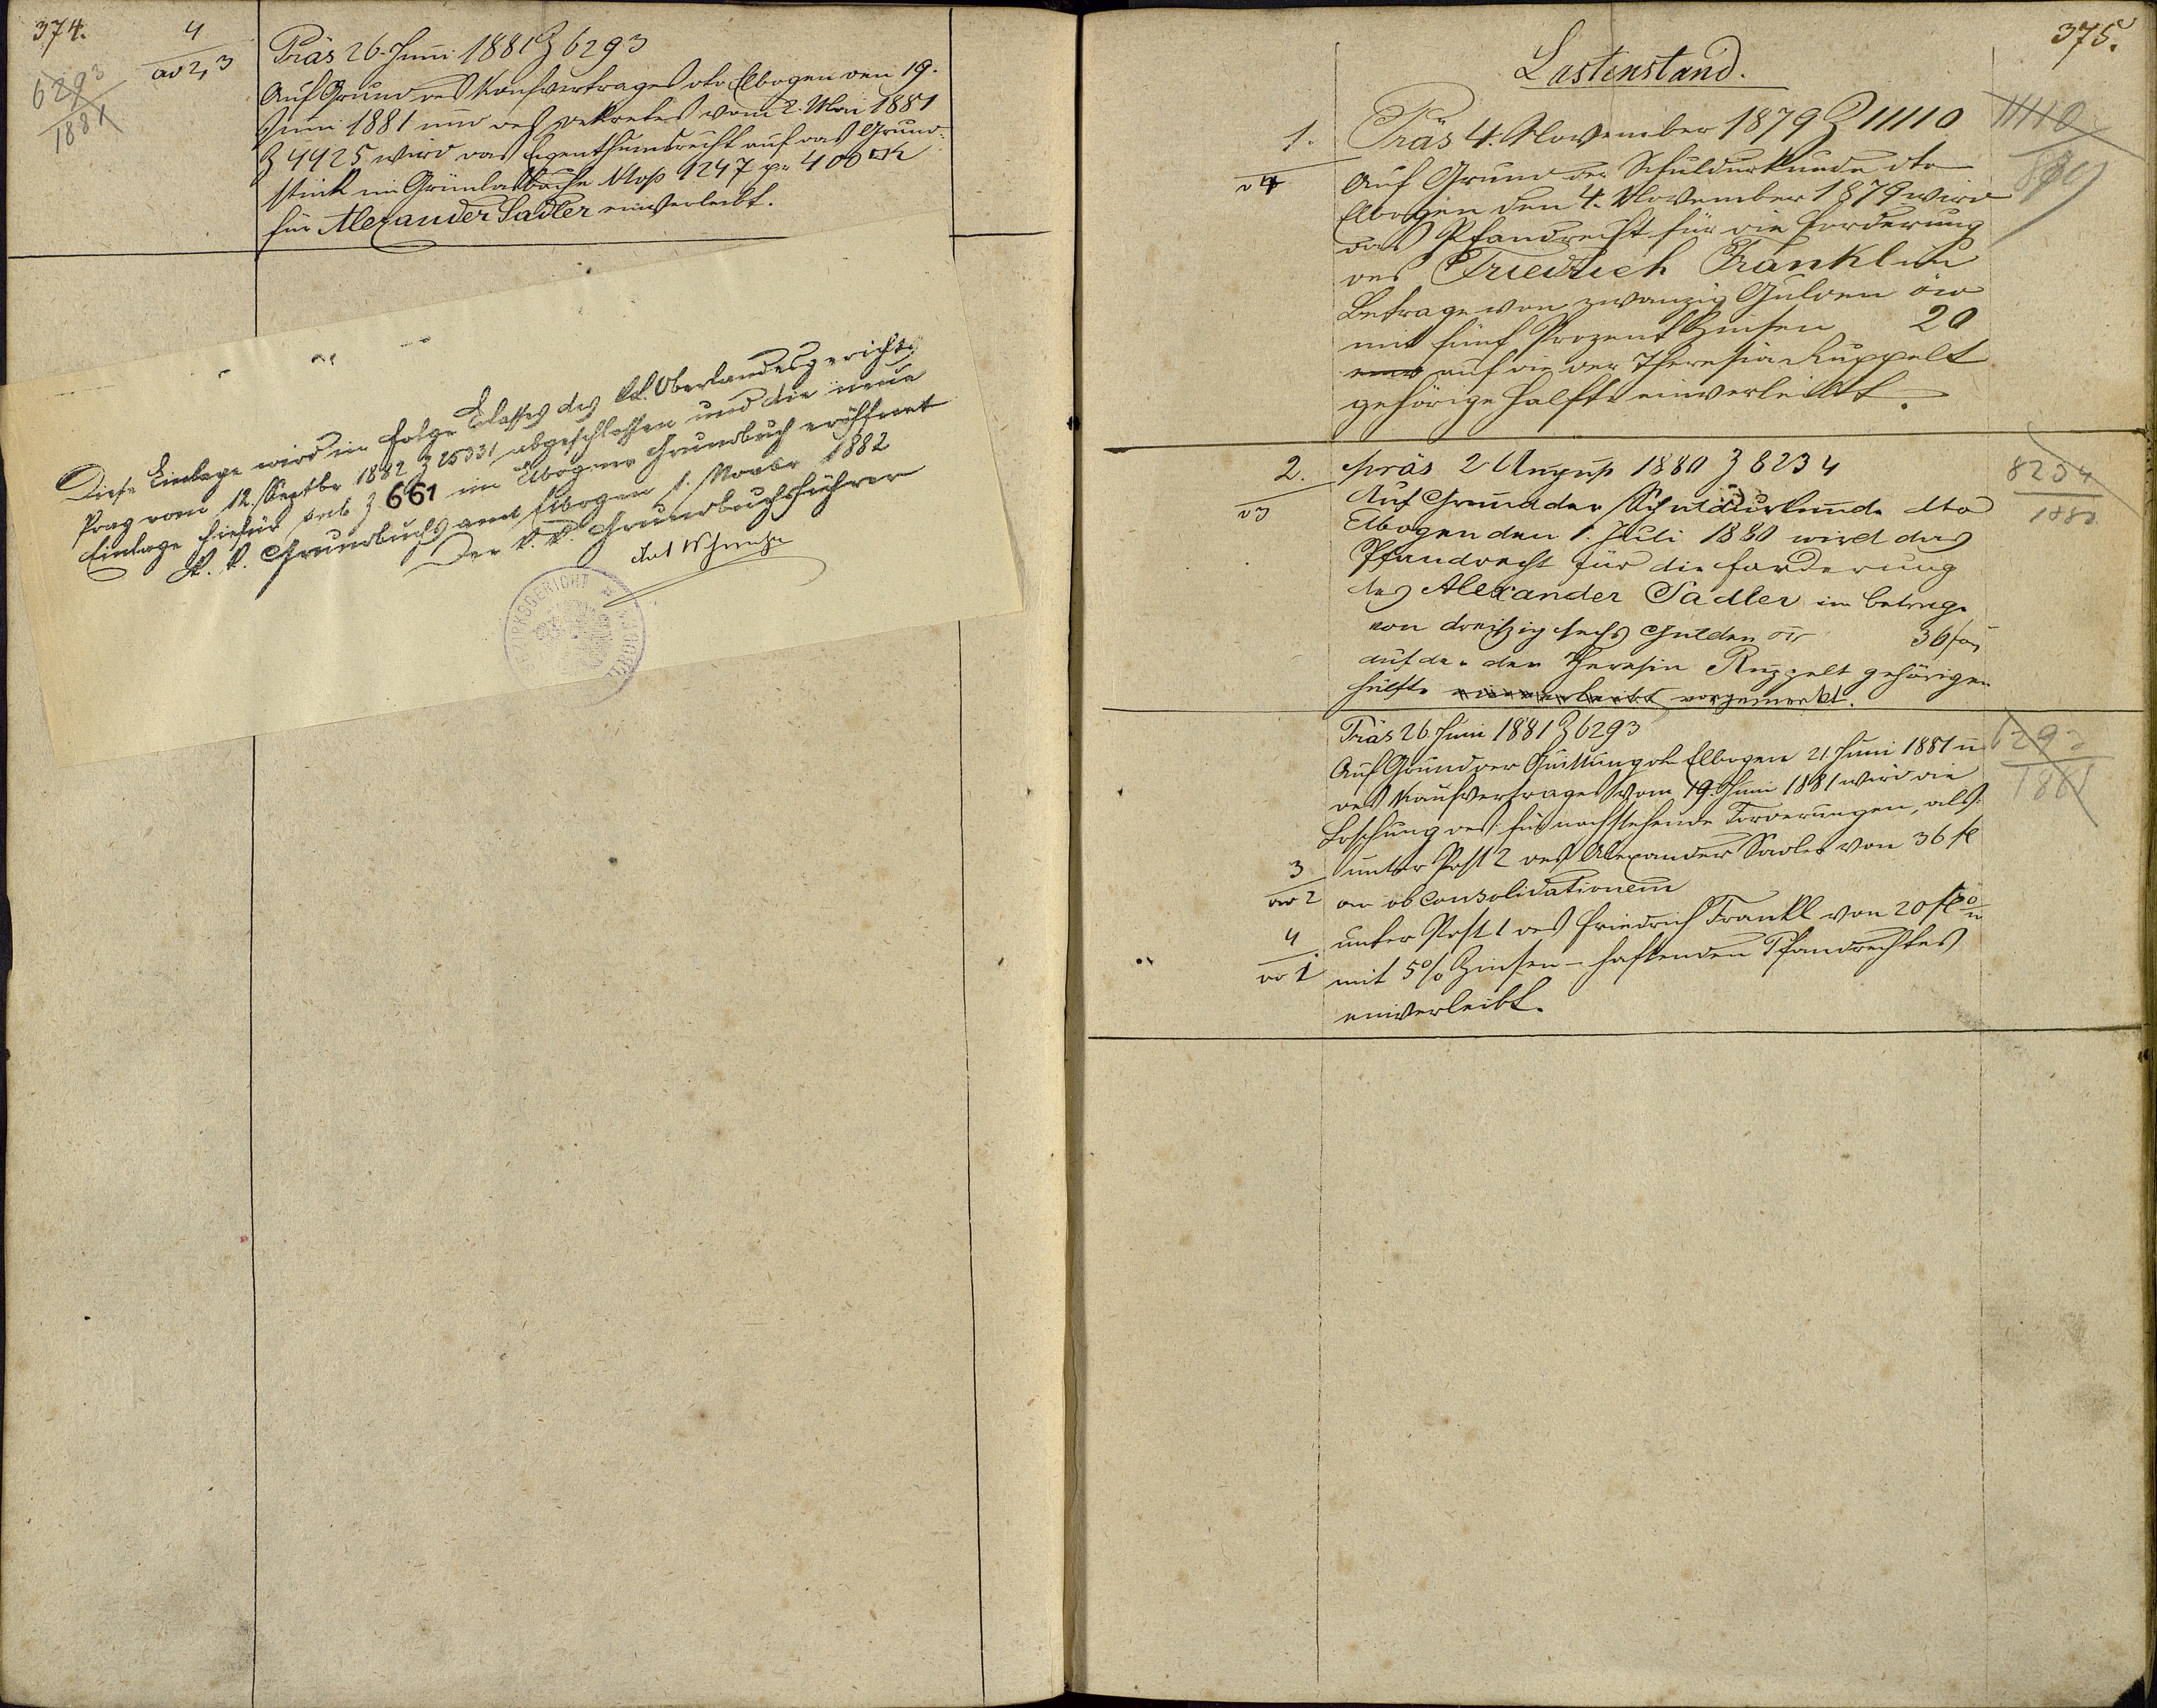 374.
4
ad 2, 3
6293
1881
Präs 26. Juni 1881 Z 6293
Auf Grund des Kaufvertrages dto Elbogen den 19.
Juni 1881 und des Dekretes vom 2. Mai 1881
Z 4425 wird das Eigenthumsrecht auf das Grund-
stück im Grünlasbache N top 1247 pr 400 □K
für Alexander Sadler einverleibt.
Diese Einlage wird in Folge Erlasses des k.k. Oberlandesgerichts
Prag vom 12. Septbr 1882 Z 25331 abgeschlossen und die neue
Einlage hiefür sub Z 661 im Elbogner Grundbuch eröffnet
K. k. Grundbuchsamt Elbogen 1. Novbr 1882
Der k. k. Grundbuchsführer
BEZIRKSGERICHT
375.
Lastenstand.
1.
v 4
Präs 4. November 1879 Z 11110
11110
Auf Grund der Schuldurkunde dto
Elbogen den 4. November 1879 wird
das Pfandrecht für die Forderung
des Friedrich Frankl im
Betrage von zwanzig Gulden öw
mit fünf Prozent Zinsen 20
auf die der Theresia Ruppelt
gehörige Hälfte einverleibt.
2.
v 3
Präs 2 August 1880 Z 8234
8234
1880
Auf Grund der Schuldurkunde dto
Elbogen den 1. Juli 1880 wird das
Pfandrecht für die Forderung
des Alexander Sadler im Betrage
von dreißig sechs Gulden öw 36 f
auf der der Theresia Ruppelt gehörigen
Hälfte einverleibt vorgemerkt.
Präs 26 Juni 1881 Z 6293
6293
1881
Auf Grund der Quittung dto Elbogen 21 Juni 1881 u
des Kaufvertrages vom 19. Juni 1881 wird die
Löschung des für nachstehende Forderungen, als:
3
ad 2
unter Post 2 des Alexander Sadler von 36 fl
ob consolidationem
4
ad 1
unter Post 1 des Friedrich Frankl von 20 fl ö w
mit 5% Zinsen – haftenden Pfandrechtes
einverleibt.